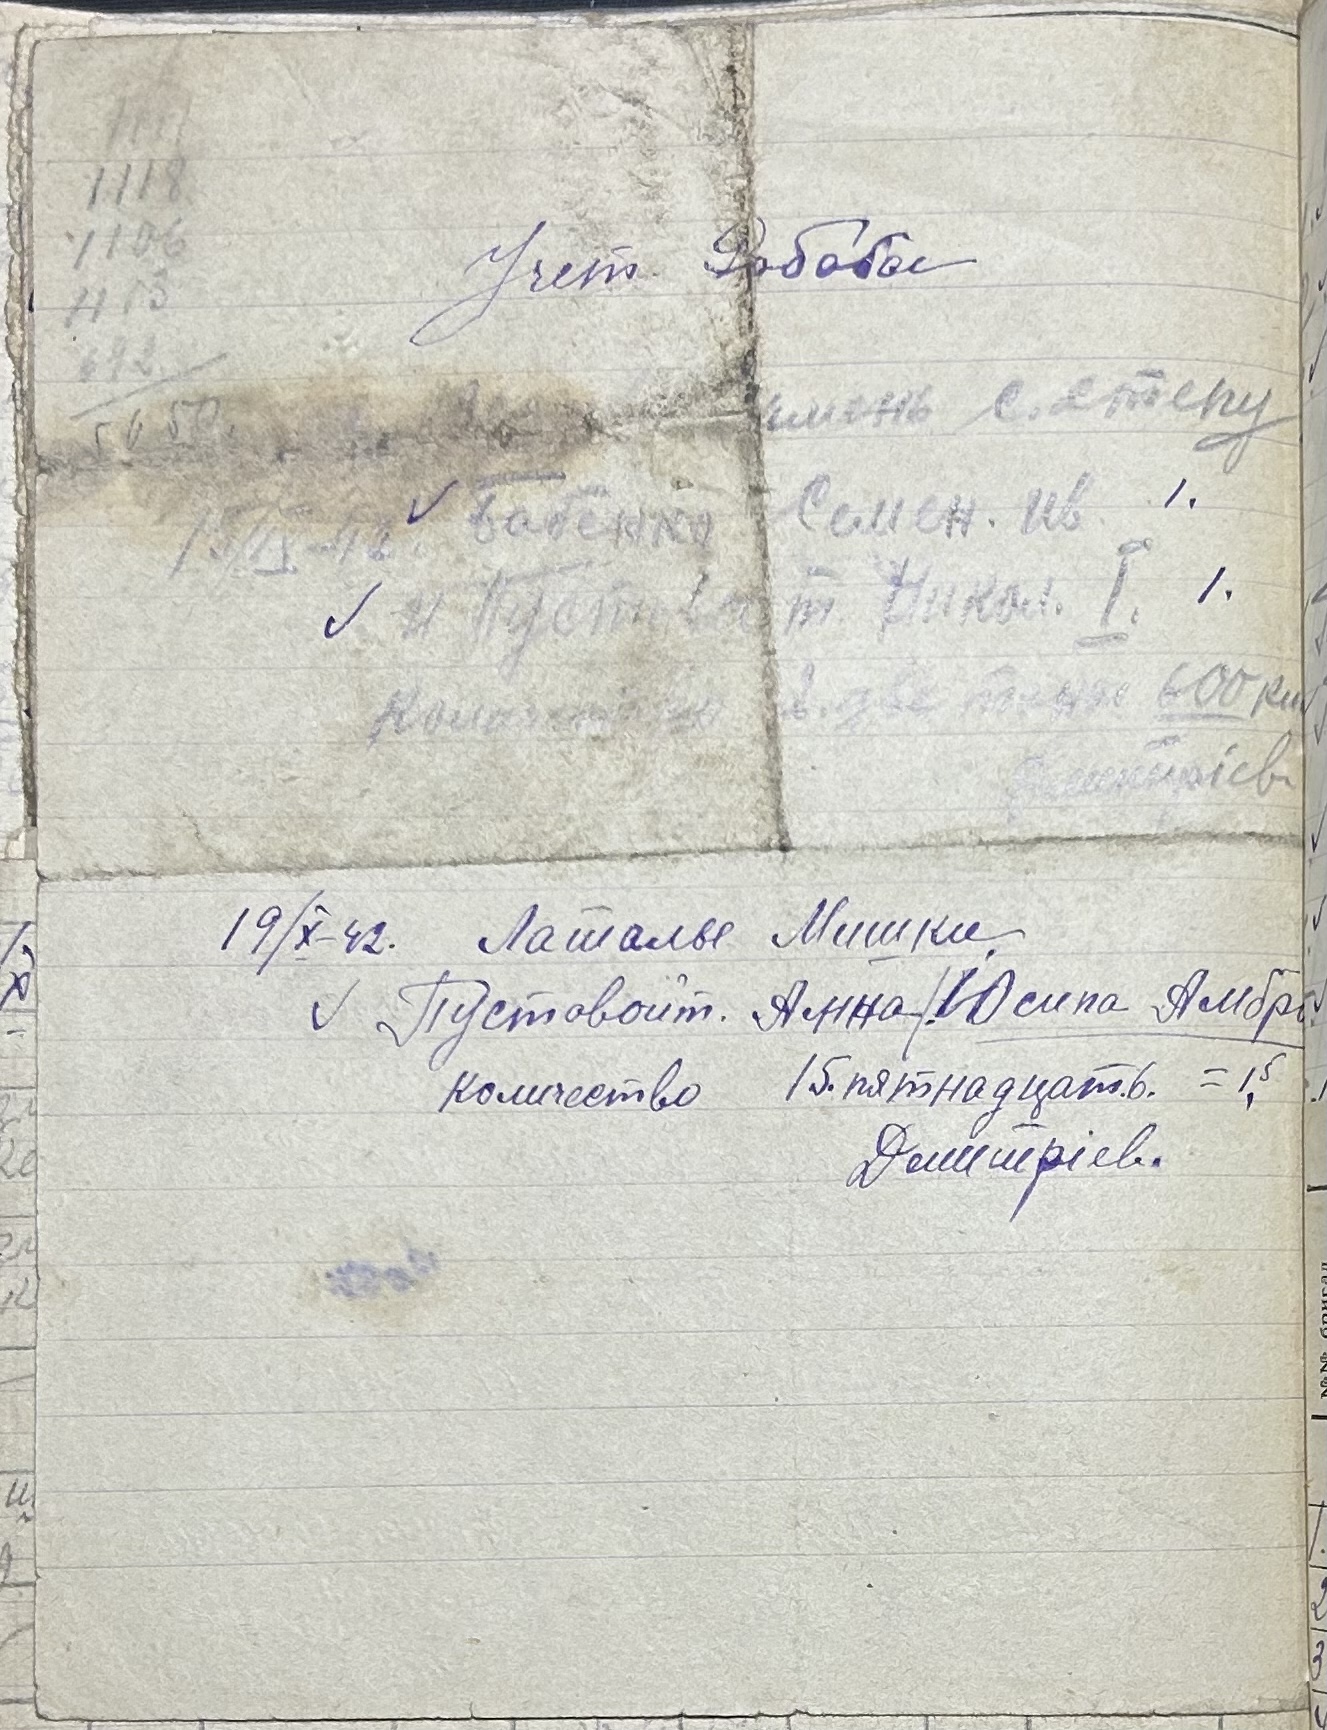 1118
1106
1113
692
5650.
Учет Работы
ячмень с. степу
15/IX-42. Бабенко Семен. Ив. 1.
и Пустовойт. Никол. I. 1.
Количество в. две тонны 600 кил
Дмитріев.
19/X-42. Латалье Мишки
Пустовойт. Анна/Юсипа Амбро
количество 15. пятнадцать. = 1,5
Дмитріев.